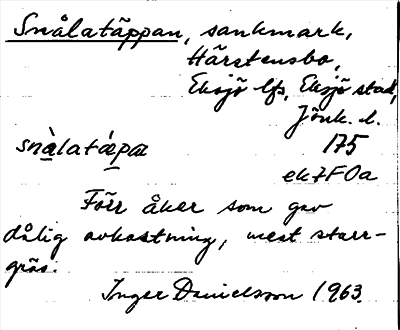 Snålatäppan, sankmark,
Härstensbo,
Eksjö lfs, Eksjö stad,
Jönk. l.
snàlatǽpa 175
ek7F0a
Förr åker som gav
dålig avkastning, mest starr-
gräs.
Inger Danielsson 1963.